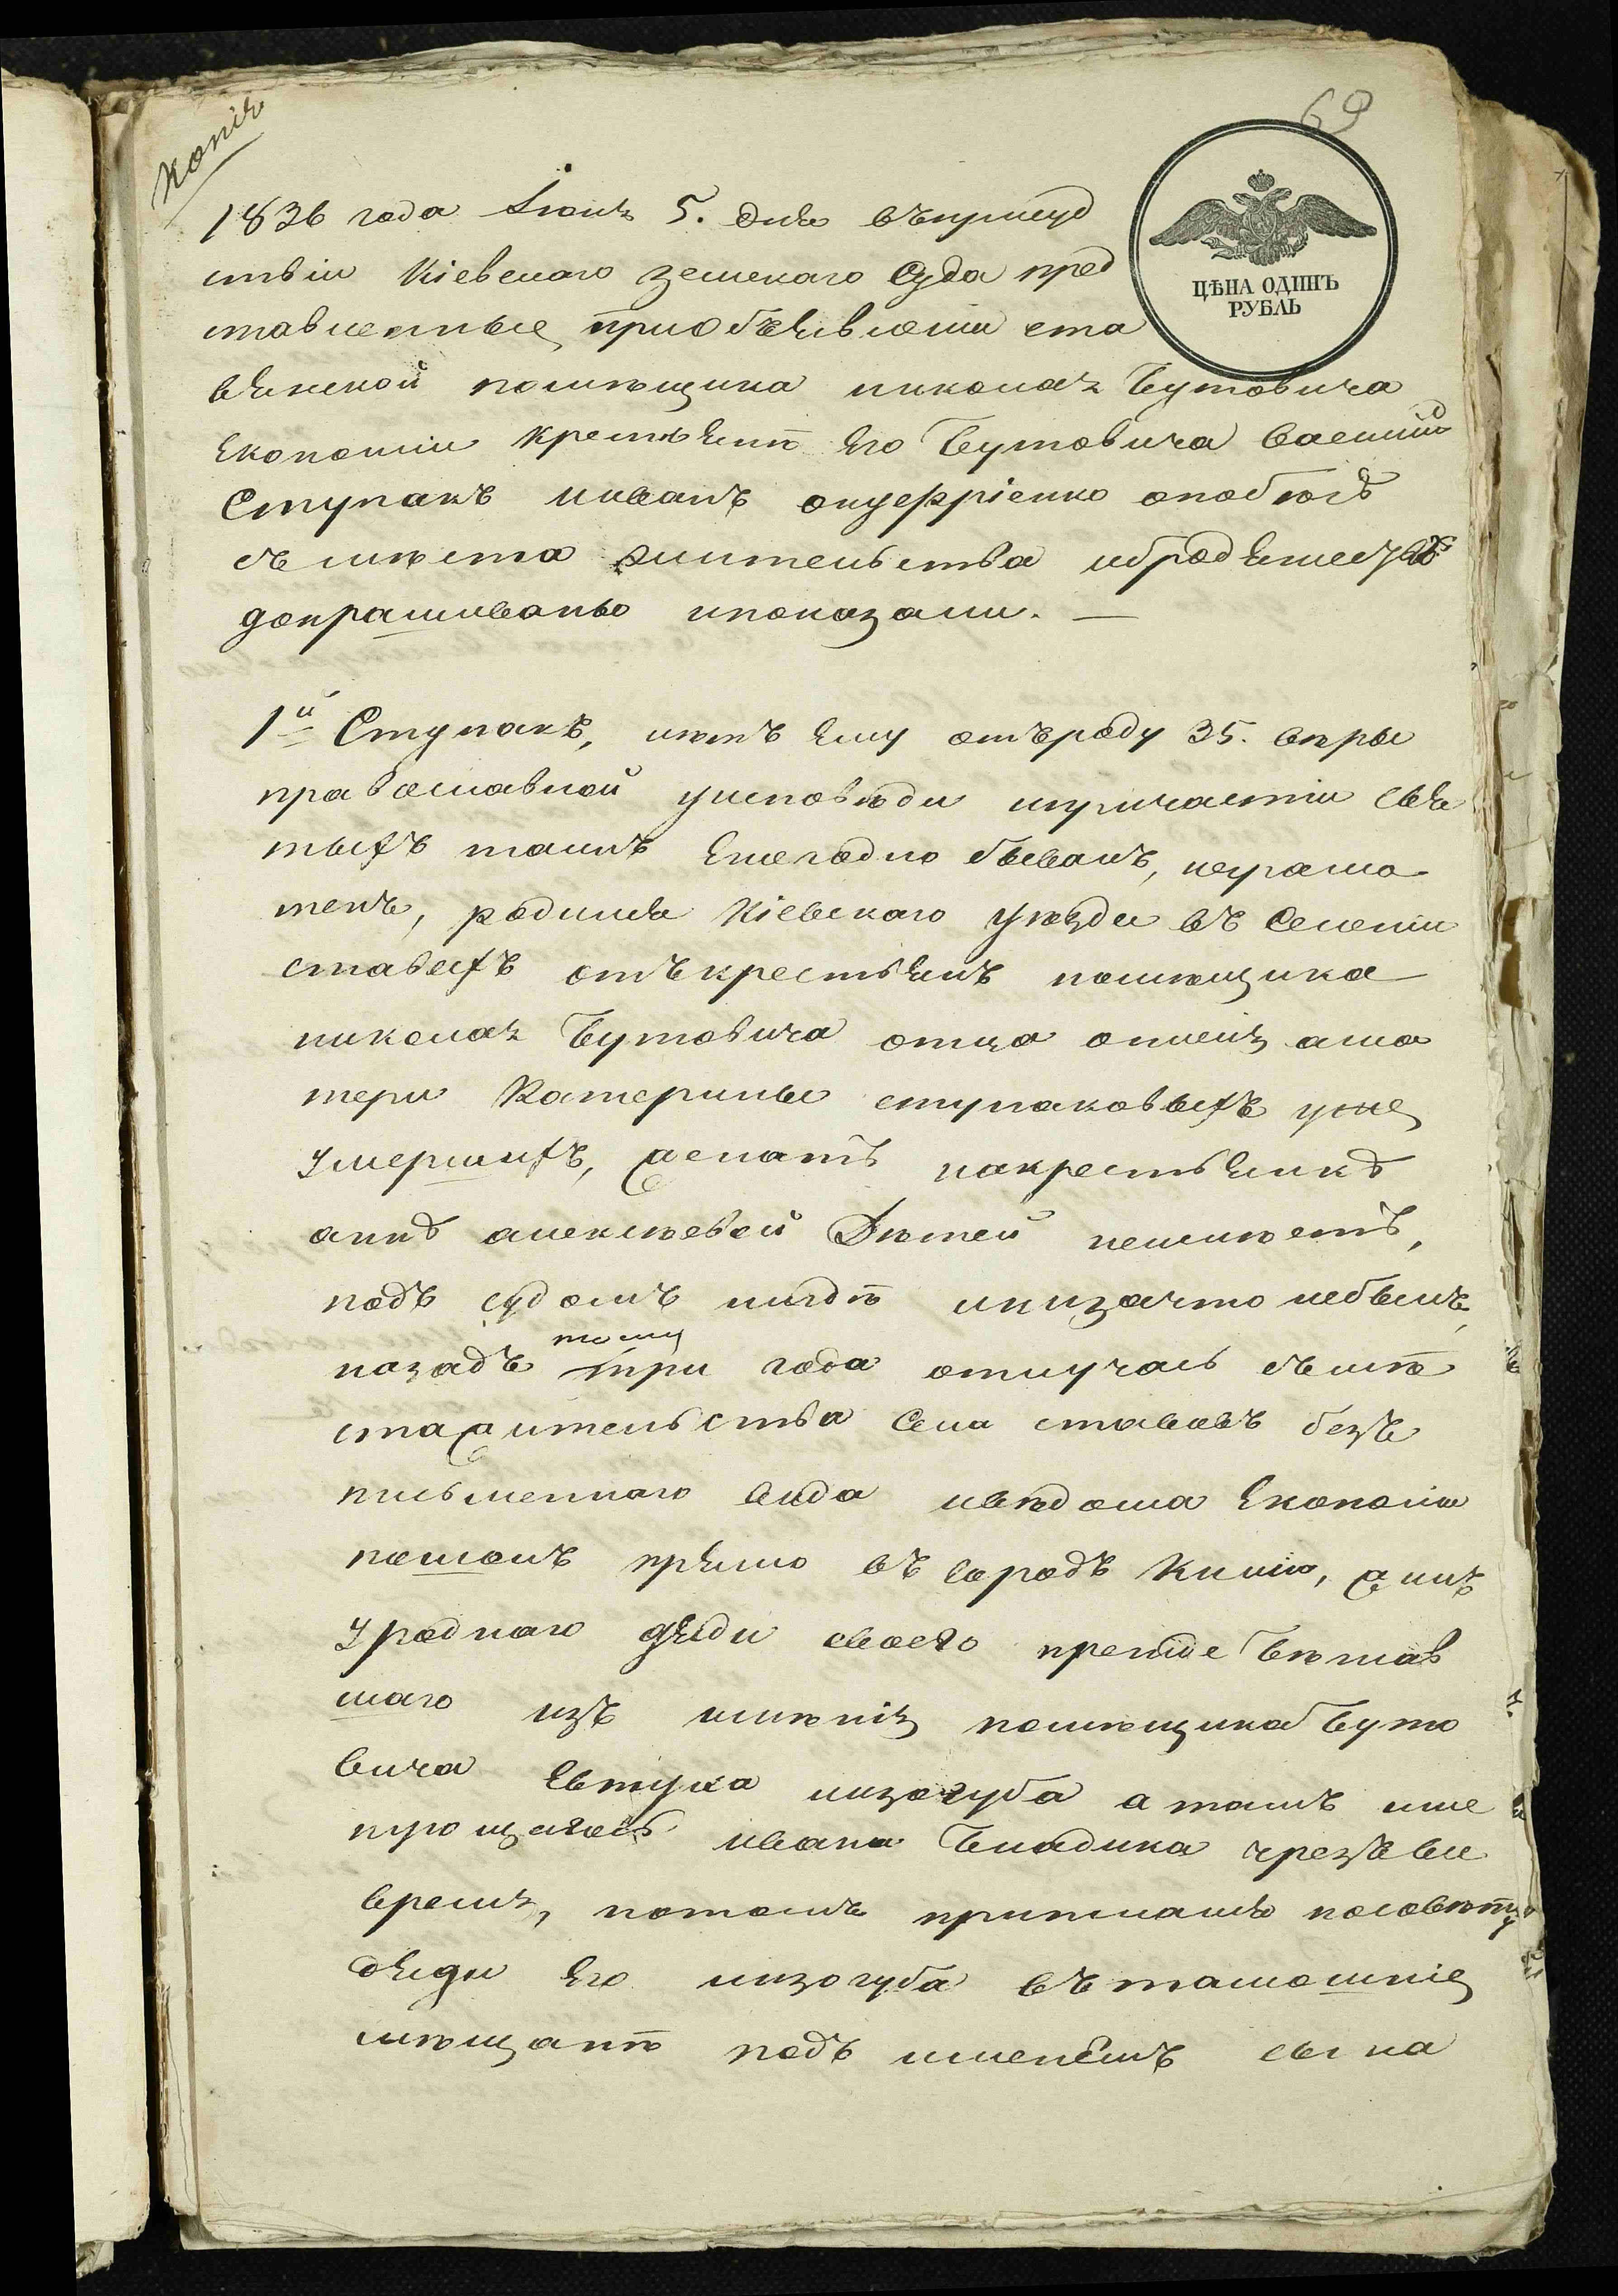 Копія
69
ЦѢНА ОДИНЪ
РУБЛЬ
1836 года Іюня 5. дня въприсуд
ствіи Кіевскаго земскаго Суда пред
ставленные приобъявленіи ста
вянской помѣщика николая Бутовича
Економіи крестьянѣ его Бутовича Василій
Ступакъ иванъ онуфріенко опобѣгѣ
съ мѣста жительства ибродяжеству
допрашиваны ипоказали. —
1й Ступакъ, лѣтъ ему отъроду 35. вѣры
православной уисповѣди ипричастіи свя
тыхъ таинъ Ежегодно бывалъ, неграмо
тенъ, родился Кіевскаго уѣзда въ Селеніи
ставахъ отъкрестьянъ помѣщика
николая Бутовича отца ама
тери Катерины ступаковыхъ уже
умершихъ, женатъ накрестьянкѣ
аннѣ алексѣевой Дѣтей неимѣетъ,
подъ судомъ нигдѣ инизачто небылъ,
назадъ тому три года отлучась съмѣ
стажительства Села ставовъ безъ
письменнаго вида ивѣдома Економіи
пошолъ прямо въ городъ , жилъ
уроднаго дяди своего прежде бѣжав
шаго изъ имѣнія помѣщика Буто
вича Евтуха лизогуба атамъ име
ивана чрезъ все
время, потомъ приписался посовѣту
дяди Его лизогуба въ тамошніе
мѣщанѣ подъ именемъ сына